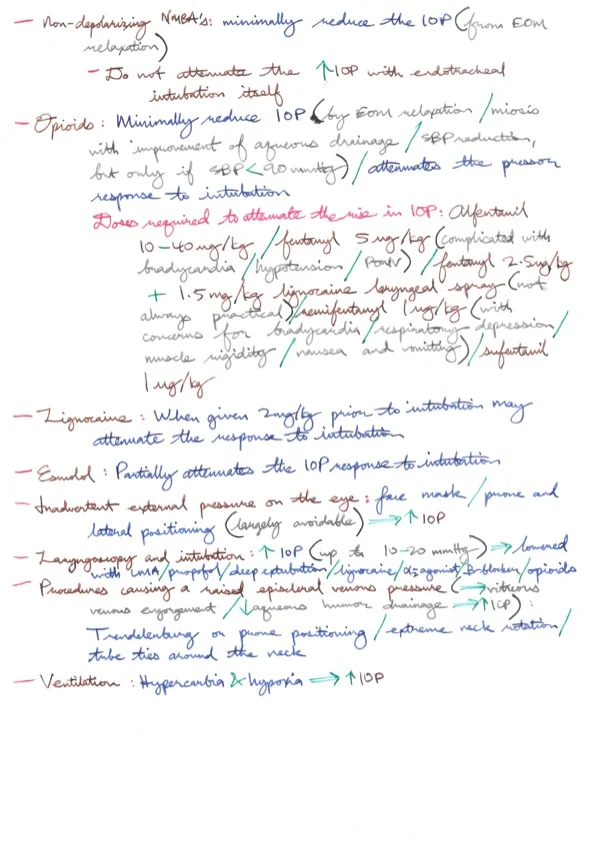 — Non-depolarizing NMBA's: minimally reduce the IOP (from EOM
relaxation)
— Do not attenuate the ↑IOP with endotracheal
intubation itself
— Opioids: Minimally reduce IOP (by EOM relaxation / miosis
with improvement of aqueous drainage / SBP reduction,
but only if SBP < 90 mmHg) / attenuates the pressor
response to intubation
Doses required to attenuate the rise in IOP: Alfentanil
10-40ug/kg / fentanyl 5ug/kg (complicated with
bradycardia / hypotension / PONV) / fentanyl 2.5ug/kg
+ 1.5mg/kg lignocaine laryngeal spray (not
always practical) / remifentanyl 1ug/kg (with
concerns for bradycardia / respiratory depression /
muscle rigidity / nausea and vomitting) / sufentanil
1ug/kg
— Lignocaine: When given 2mg/kg prior to intubation may
attenuate the response to intubation
— Esmolol: Partially attenuates the IOP response to intubation
— Inadvertent external pressure on the eye: face mask / prone and
lateral positioning (largely avoidable) ⟹ ↑IOP
— Laryngoscopy and intubation: ↑IOP (up to 10-20 mmHg) ⟹ lowered
with LMA / propofol / deep extubation / lignocaine / α2 agonist / B-blocker / opioids
— Procedures causing a raised episcleral venous pressure (⟹ vitreous
venous engorgement / ↓aqueous humor drainage ⟹ ↑ICP):
Trendelenburg or prone positioning / extreme neck rotation /
tube ties around the neck
— Ventilation: Hypercarbia & hypoxia ⟹ ↑IOP